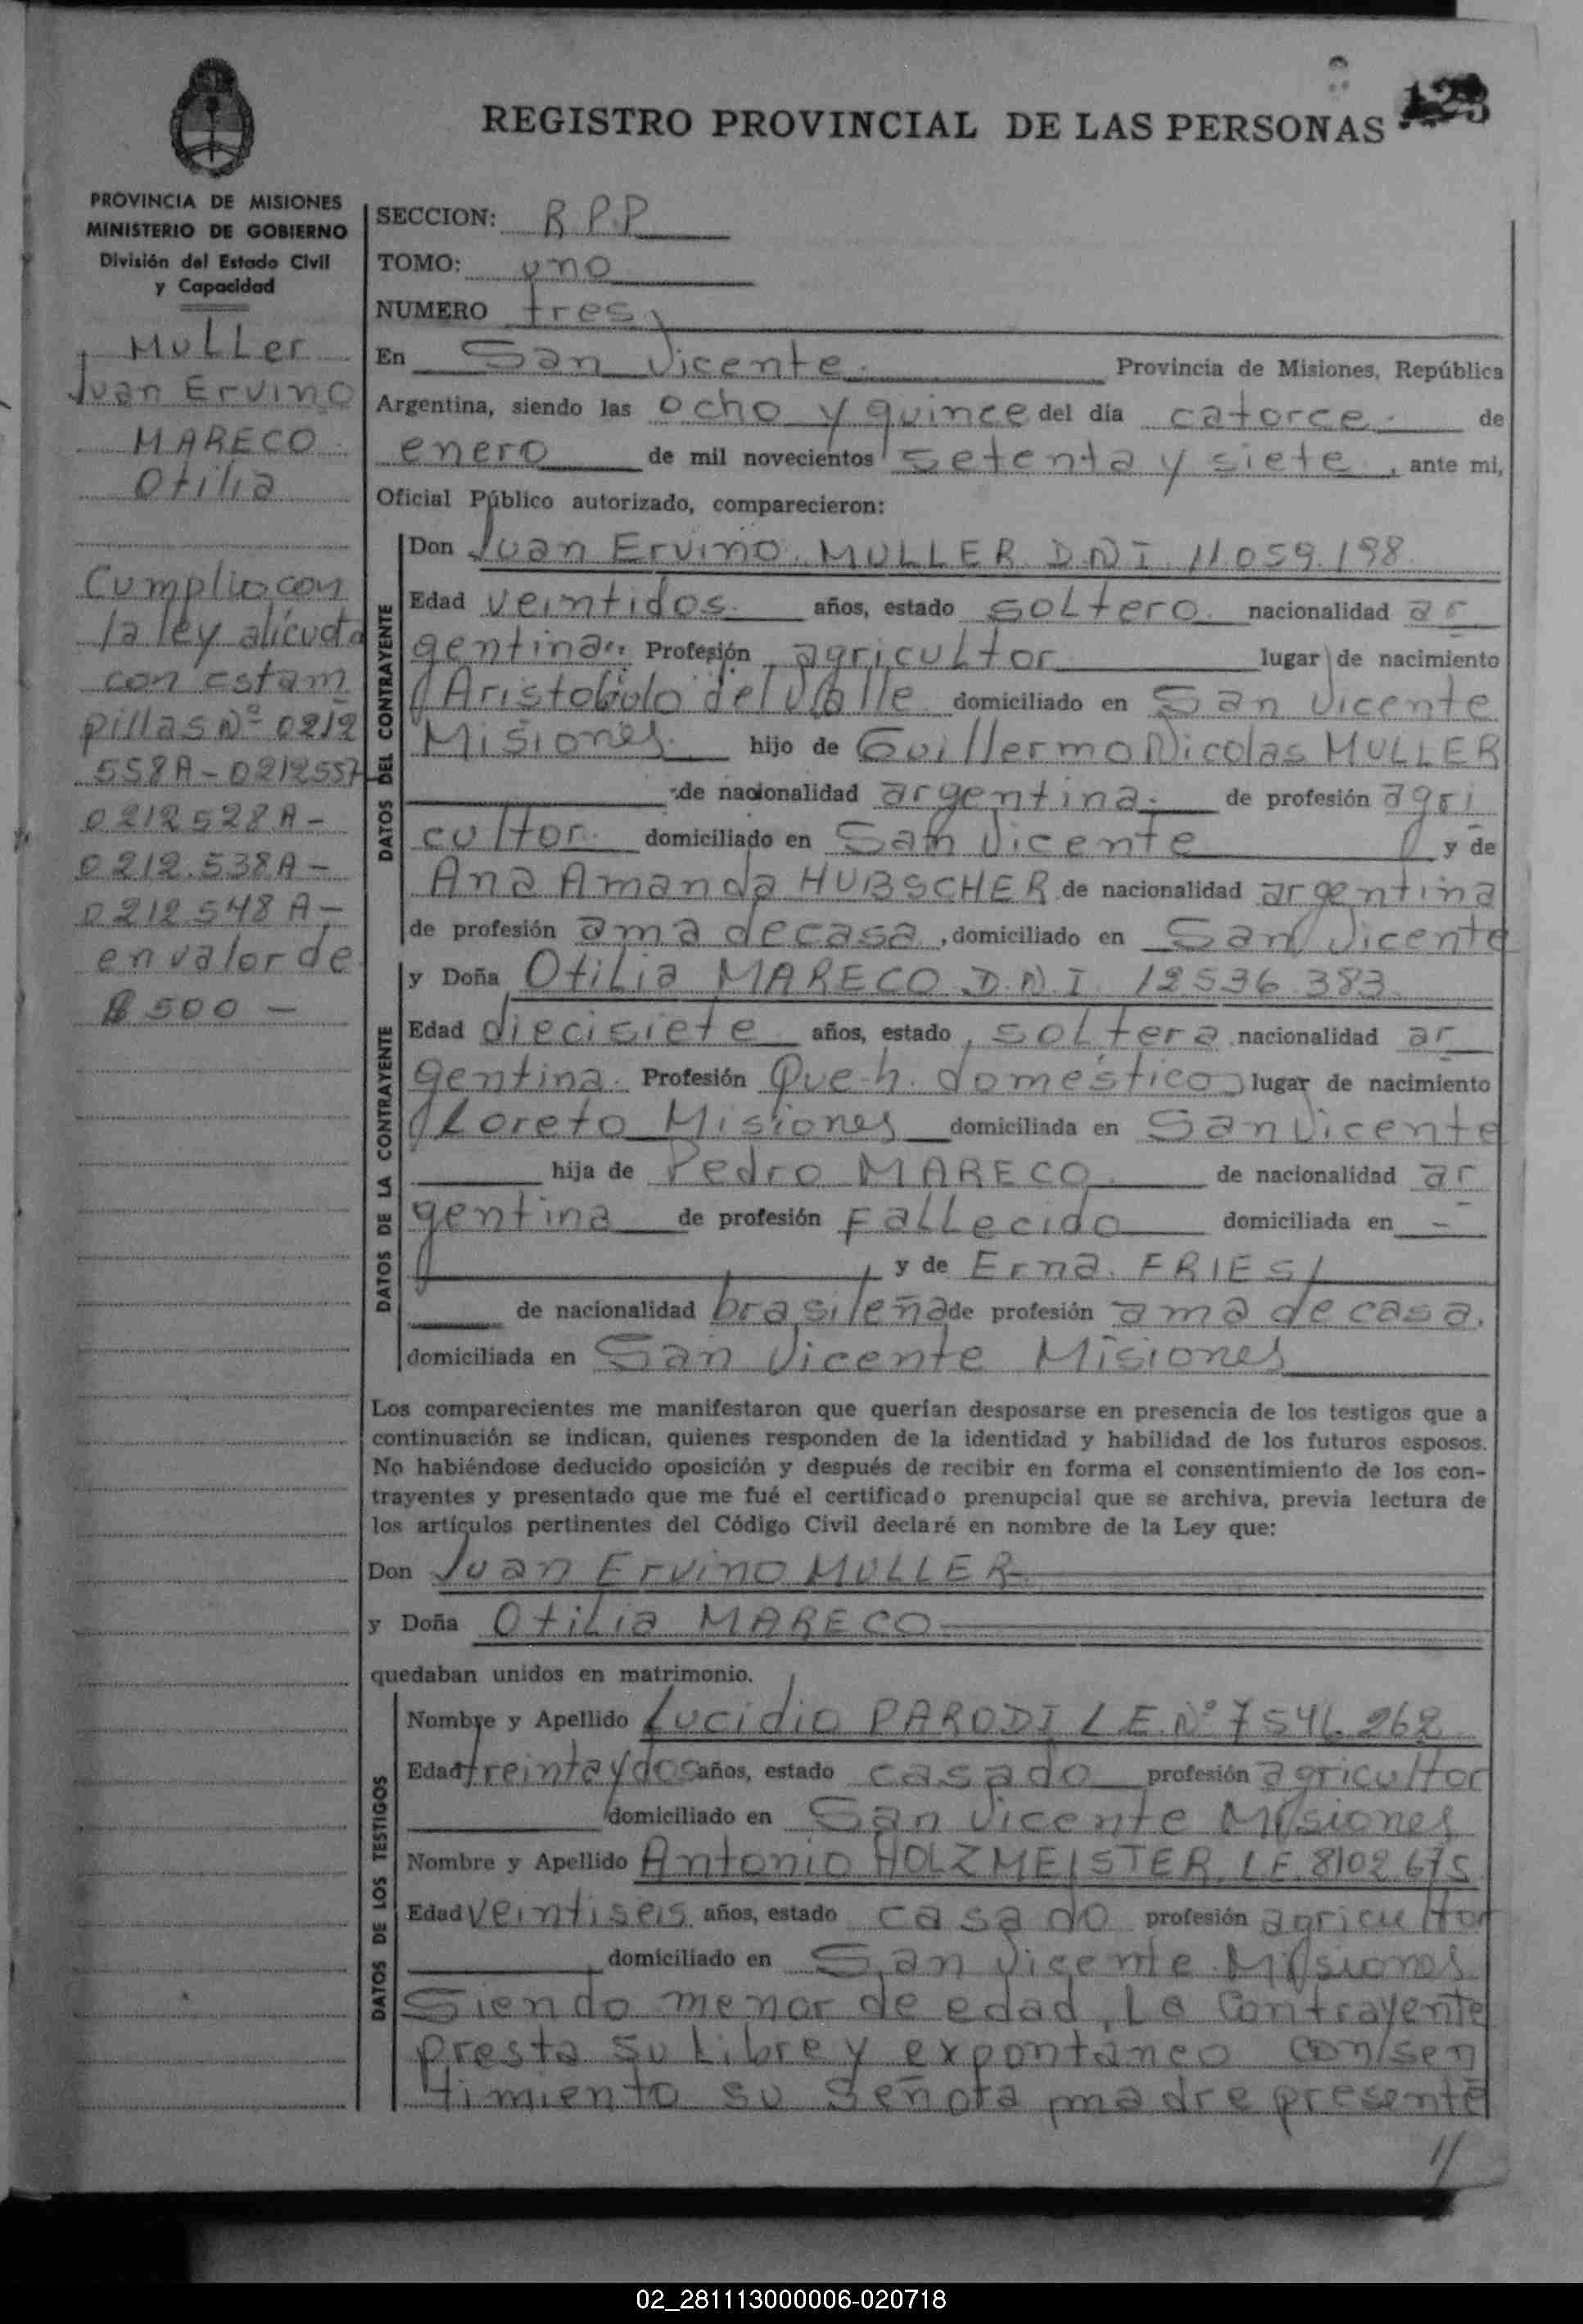 123
REGISTRO PROVINCIAL DE LAS PERSONAS
PROVINCIA DE MISIONES
MINISTERIO DE GOBIERNO
División del Estado Civil
y Capacidad
Muller
Juan Ervino
MARECO
Otilia
Cumplio con
la ley alícuota
con estam
pillas Nº 0212
558A - 0212557
0212528A -
0212.538A -
0212548A -
en valor de
$ 500 -
SECCION: R.P.P
TOMO: uno
NUMERO tres
En San Vicente Provincia de Misiones, República
Argentina, siendo las ocho y quince del día catorce de
enero de mil novecientos setenta y siete, ante mi,
Oficial Público autorizado, comparecieron:
DATOS DEL CONTRAYENTE
Don Juan Ervino MULLER D.N.I. 11.059.198
Edad veintidos años, estado soltero nacionalidad ar
gentina Profesión agricultor lugar de nacimiento
Aristobulo del Valle domiciliado en San Vicente
Misiones hijo de Guillermo Nicolas MULLER
de nacionalidad argentina de profesión agri
cultor domiciliado en San Vicente y de
Ana Amanda HUBSCHER de nacionalidad argentina
de profesión ama de casa, domiciliado en San Vicente
DATOS DE LA CONTRAYENTE
y Doña Otilia MARECO D.N.I. 12536383
Edad diecisiete años, estado soltera nacionalidad ar
gentina Profesión Que-h. doméstico lugar de nacimiento
Loreto Misiones domiciliada en San Vicente
hija de Pedro MARECO de nacionalidad ar
gentina de profesión Fallecido domiciliada en -
y de Erna FRIES
de nacionalidad brasileña de profesión ama de casa.
domiciliada en San Vicente Misiones
Los comparecientes me manifestaron que querían desposarse en presencia de los testigos que a
continuación se indican, quienes responden de la identidad y habilidad de los futuros esposos.
No habiéndose deducido oposición y después de recibir en forma el consentimiento de los con-
trayentes y presentado que me fué el certificado prenupcial que se archiva, previa lectura de
los artículos pertinentes del Código Civil declaré en nombre de la Ley que:
Don Juan Ervino MULLER
y Doña Otilia MARECO
quedaban unidos en matrimonio.
DATOS DE LOS TESTIGOS
Nombre y Apellido Lucidio PARODI L.E. Nº 7546262
Edad treinta y dos años, estado casado profesión agricultor
domiciliado en San Vicente Misiones
Nombre y Apellido Antonio HOLZMEISTER L.E. 8102675
Edad veintiseis años, estado casado profesión agricultor
domiciliado en San Vicente Misiones
Siendo menor de edad, La Contrayente
presta su Libre y expontaneo consen
timiento su Señora madre presente
//
02_281113000006-020718